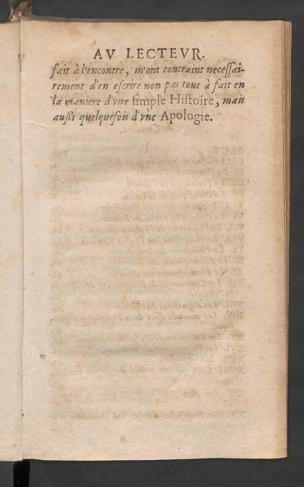 AV LECTEVR.
fait à l'encontre, m'ont contraint necessai-
rement d'en escrire non pas tout à fait en
la maniere d'vne simple Histoire, mais
aussi quelquefois d'vne Apologie.